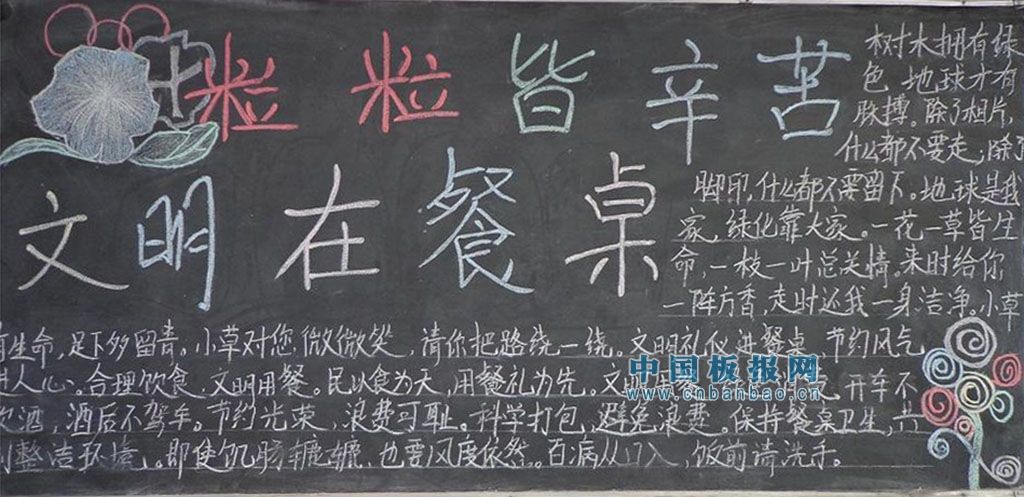 粒粒皆辛苦
文明在餐桌
树木拥有绿
色 地球才有
脉搏。除了相片,
什么都不要走,除了
脚印,什么都不要留下。地球是我
家,绿化靠大家。一花一草皆生
命,一枝一叶总关情。来时给你
一阵方香,走时还我一身洁净。小草
有生命,足下多留青。小草对您微微笑,请你把路绕一绕。文明礼仪进餐桌 节约风气
进人心。合理饮食,文明用餐。民以食为天,用餐礼为先。文明 开车不
饮酒,酒后不驾车。节约光荣,浪费可耻。科学打包,避免浪费。保持餐桌卫生,共
创整洁环境。即使饥肠辘辘,也要风度依然。百病从口入,饭前请洗手。
中国板报网
www.cnbanbao.cn